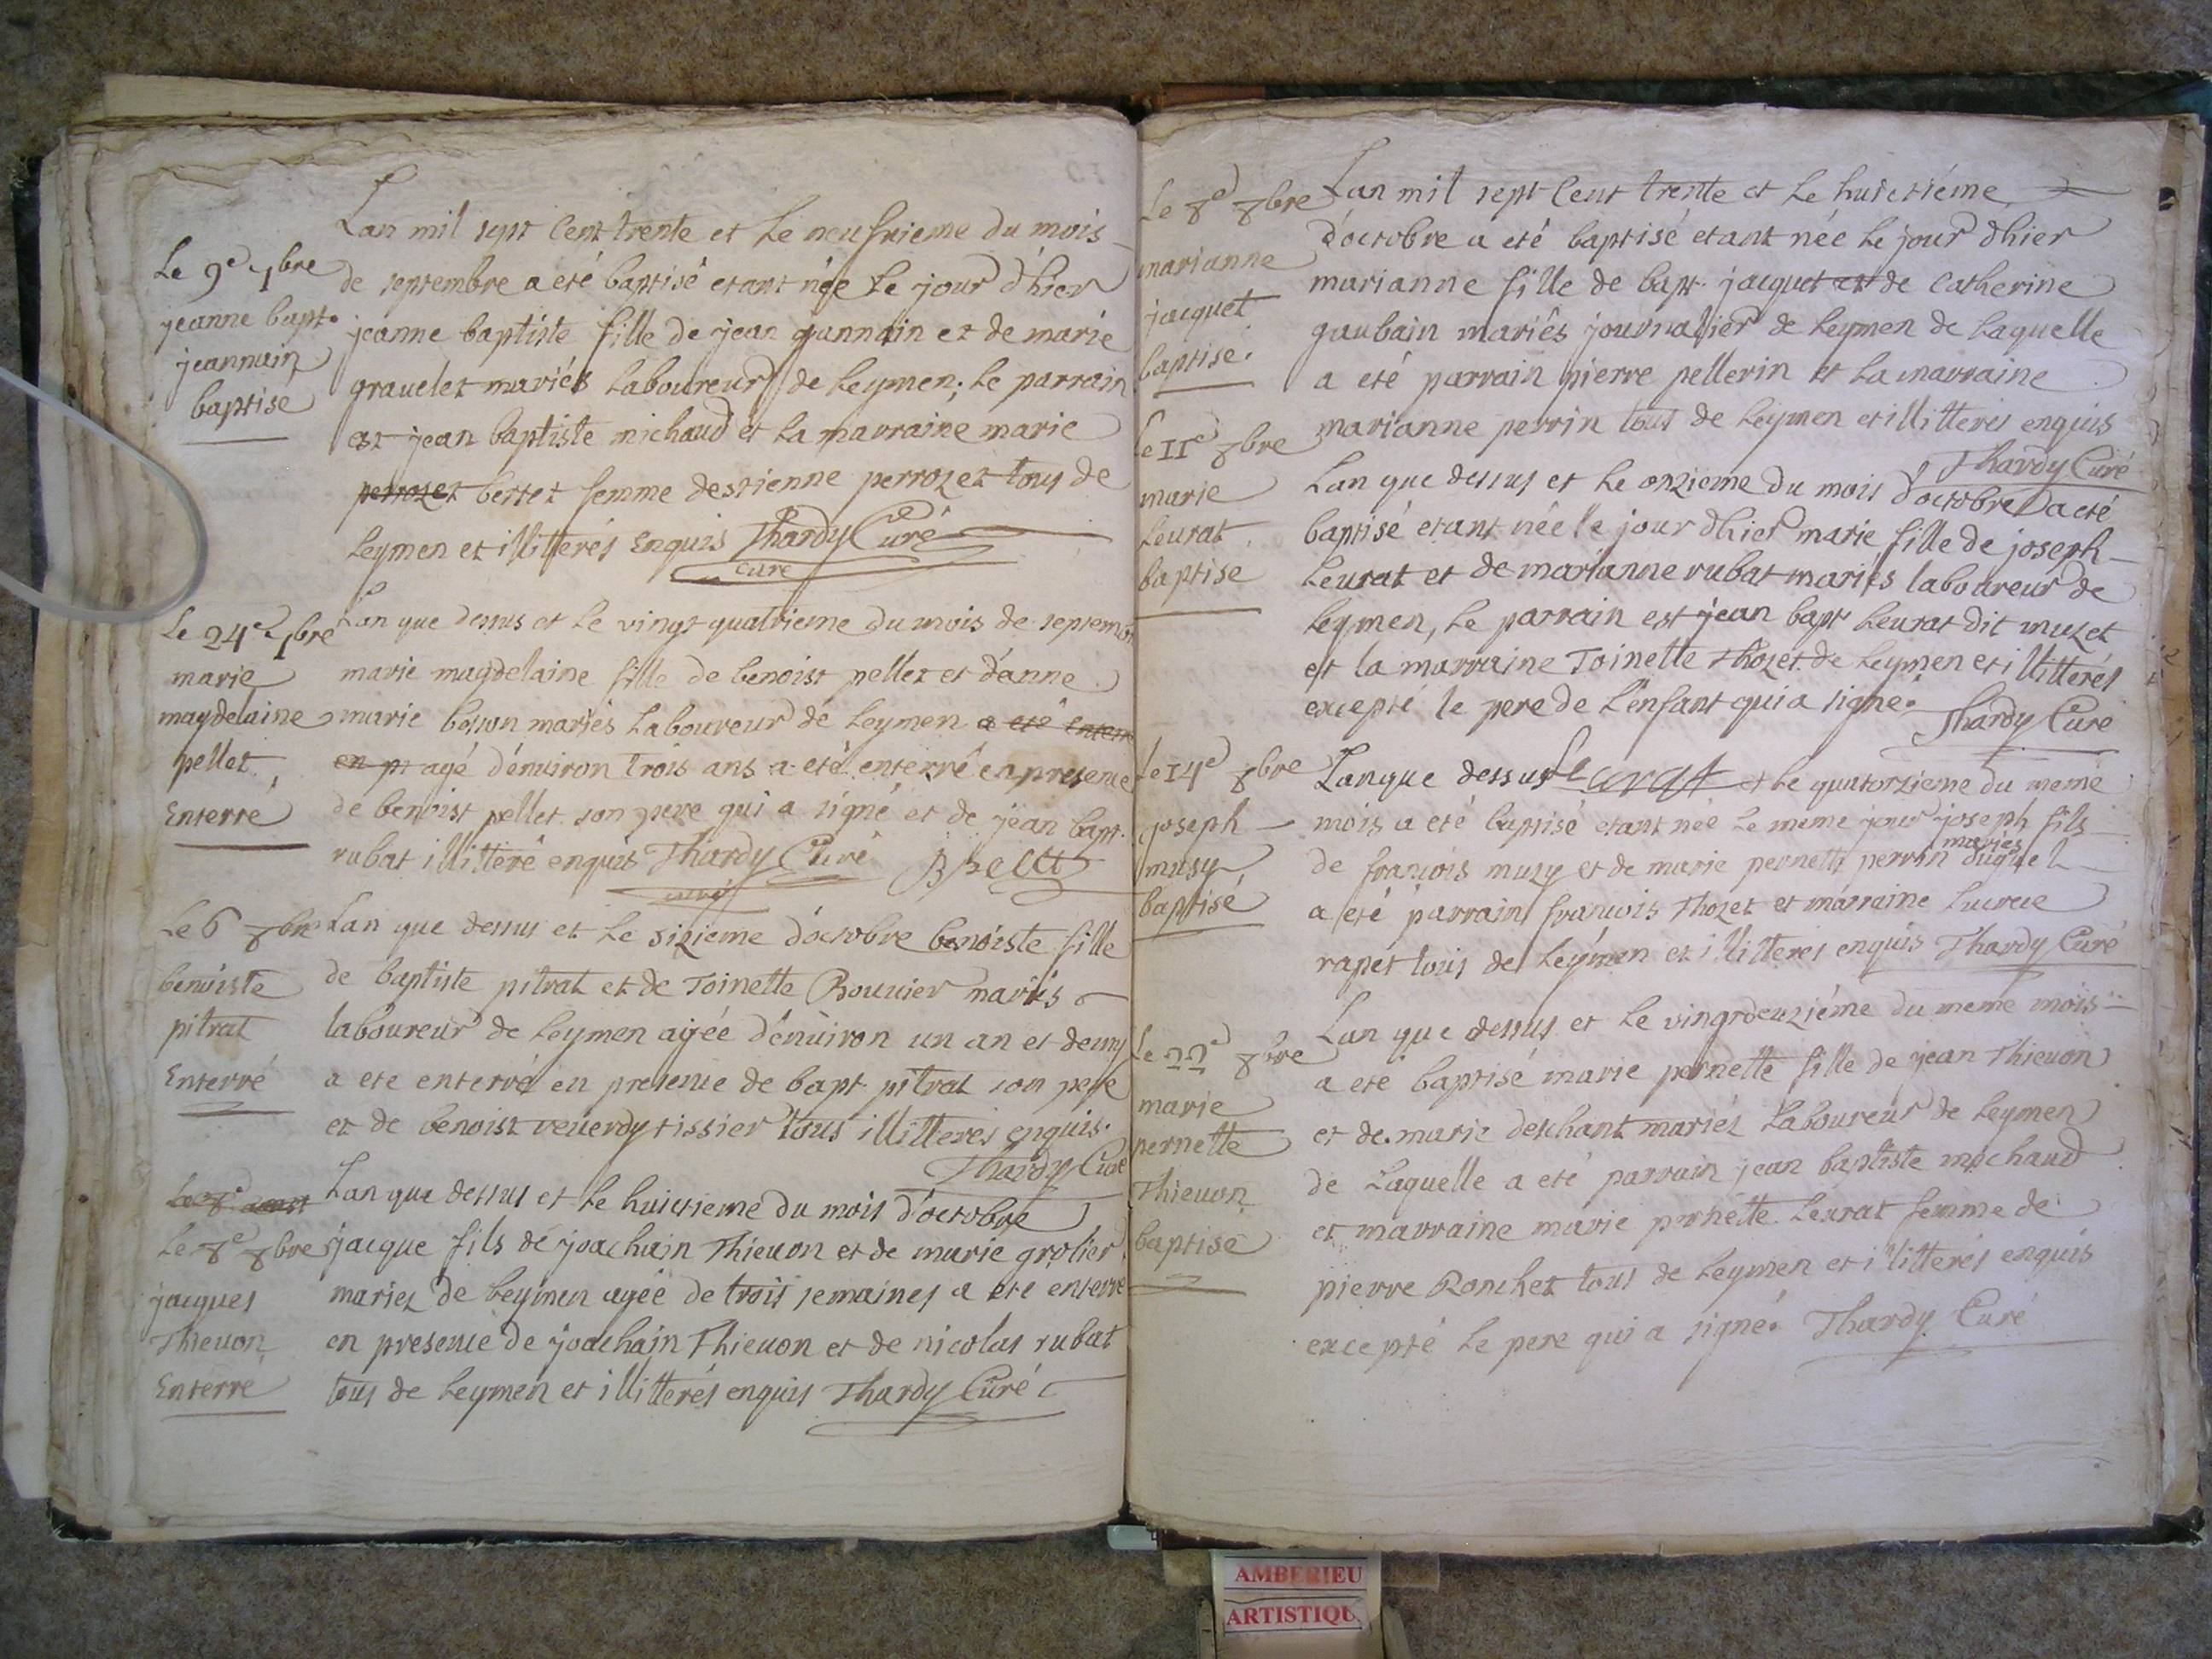 Le 9e 7bre
jeanne bapt.
jeannain
baptise
Lan mil sept Cent trente et Le neufuieme du mois
de septembre a eté baptisé etant née Le jour d'hier
jeanne baptiste fille de jean gannain et de marie
grauelet mariés Laboureur de Leymen; Le parrain
est jean baptiste michaud et La marraine marie
perrozet bertet femme destienne perrozet tous de
Leymen et illitterés Enquis Thardy Curé
curé
Le 24e 7bre
marie
magdelaine
pellet
Enterré
Lan que dessus et Le vingt quatrieme du mois de septembr
marie magdelaine fille de benoist pellet et d'anne
marie bosson mariés Laboureur de Leymen a eté enterr
en pr agé d'enuiron trois ans a eté enterré en presence
de benoist pellet son pere qui a signé et de jean bapt.
rubat illitteré enquis Thardy Curé B pellet
curé
Le 6 8bre
benoiste
pitrat
Enterré
Lan que dessus et Le sizieme d'octobre benoiste fille
de baptiste pitrat et de Toinette Bouuier mariés
laboureur de Leymen agée d'enuiron un an et demy
a ete enterré en presence de bapt. pitrat son pere
et de benoist reuerdy tissier tous illitterés enquis.
Thardy Curé
Le 8e aoust
Le 8e 8bre
jacques
Thieuon
Enterré
Lan que dessus et Le huictieme du mois d'octobre
jacque fils de joachain Thieuon et de marie grolier
mariez de Leymen agée de trois semaines a ete enterré
en presence de joachain Thieuon et de nicolas rubat
tous de Leymen et illitterés enquis Thardy Curé
Le 8e 8bre
marianne
jacquet
baptisé.
Lan mil sept Cent trente et Le huictiéme
d'octobre a eté baptisé etant née Le jour dhier
marianne fille de bapt. jacquet et de Catherine
gaubain mariés journalier de Leymen de Laquelle
a eté parrain pierre pellerin et La marraine
marianne perrin tous de Leymen et illitterés enquis
Thardy Curé
Le 11e 8bre
marie
Leurat
baptise
Lan que dessus et Le onzieme du mois d'octobre a eté
baptisé etant née le jour dhier marie fille de joseph
Leurat et de marianne rubat mariés laboureur de
Leymen, Le parrain est jean bapt Leurat dit muzet
et la marraine Toinette Thozet de Leymen et illitterés
excepté le pere de L'enfant qui a signé.
Thardy Curé
Le 14e 8bre
joseph
musy
baptisé
Lan que dessus Leurat et Le quatorzieme du meme
mois a eté baptisé etant née Le meme jour joseph fils
mariés
de francois muzy et de marie pernette perrin duquel
a eté parrain francois Thozet et marraine Lucrece
rapet tous de Leymen et illitterés enquis Thardy Curé
Le 22e 8bre
marie
pernette
Thieuon
baptisé
Lan que dessus et Le vingtdeuziéme du meme mois
a eté baptisé marie pernette fille de jean Thieuon
et de marie deschant mariés Laboureur de Leymen
de Laquelle a eté parrain jean baptiste michaud
et marraine marie pernette Leurat femme de
pierre Ronchet tous de Leymen et illitterés enquis
excepté Le pere qui a signé. Thardy Curé
AMBERIEU
ARTISTIQU